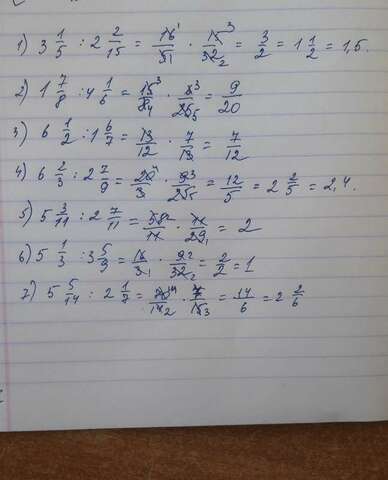 1) 3 1/5 : 2 2/15 = 16¹/5₁ · 15³/32₂ = 3/2 = 1 1/2 = 1,5.
2) 1 7/8 : 4 1/6 = 15³/8₄ · 6³/25₅ = 9/20
3) 6 1/2 : 1 6/7 = 13/12 · 7/13 = 7/12
4) 6 2/3 : 2 7/9 = 20⁴/3 · 9³/25₅ = 12/5 = 2 2/5 = 2,4.
5) 5 3/11 : 2 7/11 = 58²/11 · 11/29₁ = 2
6) 5 1/3 : 3 5/9 = 16/3₁ · 9²/32₂ = 2/2 = 1
7) 5 5/14 : 2 1/7 = /14₂ · 7/15₃ = 14/6 = 2 2/6